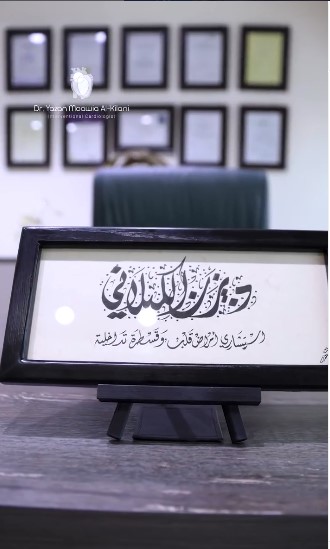 Dr. Yazan Moawia Al-Kilani
Interventional Cardiologist
د. يزن الكيلاني
استشاري أمراض قلب وقسطرة تداخلية